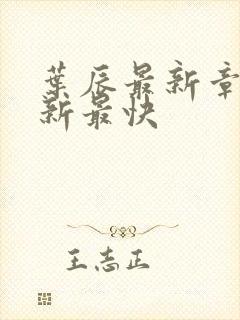 葉辰最新章
新最快
王志正